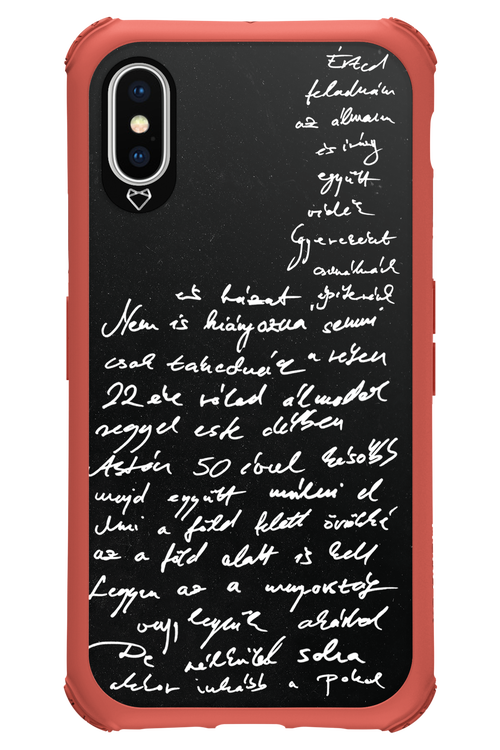 Érted
feladnám
az álmaim
és irány
együtt
vidék
Gyereket
csinálnák
és házat építenék
Nem is hiányozna semmi
csak takednék a réten
22 éve rólad álmodok
reggel este délben
Aztán 50 évvel később
majd együtt múlni el
Ami a föld felett örökké
az a föld alatt is kell
Legyen az a mennyország
vagy legyünk akárhol
De nélküled soha
akkor inkább a pokol